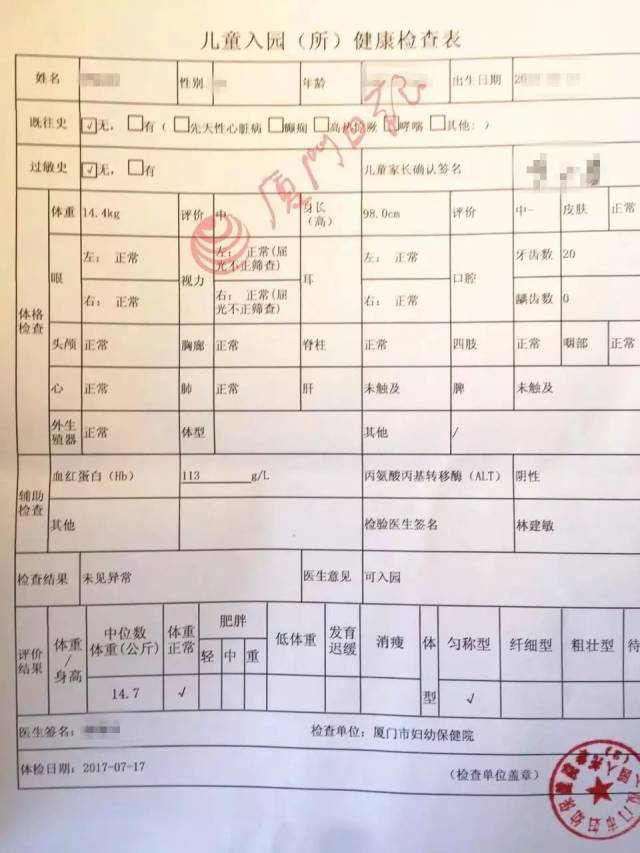 儿童入园（所）健康检查表
姓名 性别 年龄 出生日期 20
既往史 ☑无，□有（□先天性心脏病□癫痫□高热惊厥□哮喘□其他：）
过敏史 ☑无，□有 儿童家长确认签名
厦门日记
体格检查
体重 14.4kg 评价 中 身长（高） 98.0cm 评价 中- 皮肤 正常
眼 左： 正常 视力 左： 正常(屈光不正筛查) 耳 左： 正常 口腔 牙齿数 20
右： 正常 右： 正常(屈光不正筛查) 右： 正常 龋齿数 0
头颅 正常 胸廓 正常 脊柱 正常 四肢 正常 咽部 正常
心 正常 肺 正常 肝 未触及 脾 未触及
外生殖器 正常 体型 其他 /
辅助检查
血红蛋白（Hb） 113 g/L 丙氨酸丙基转移酶（ALT） 阴性
其他 检验医生签名 林建敏
检查结果 未见异常 医生意见 可入园
评价结果 体重/身高 中位数体重(公斤) 体重正常 肥胖 低体重 发育迟缓 消瘦 体型 匀称型 纤细型 粗壮型 待
轻 中 重
14.7 √ √
医生签名： 检查单位：厦门市妇幼保健院
体检日期：2017-07-17 （检查单位盖章）